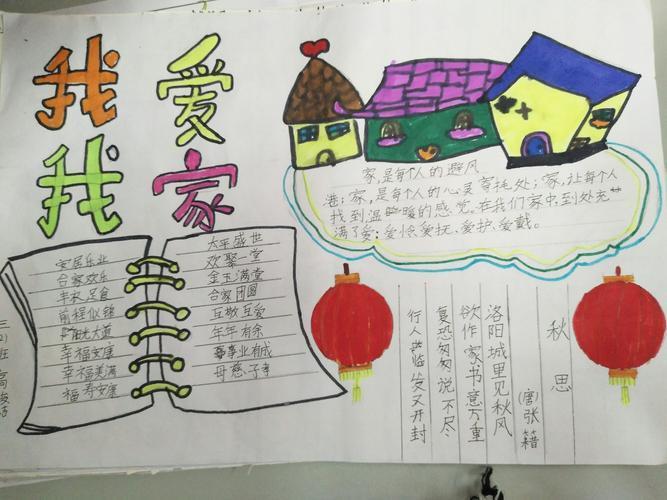 我爱
我家
家,是每个人的避风
港;家,是每个人的心灵寄托处;家,让每个人
找到温暖的感觉。在我们家中,到处充
满了爱:爱怜、爱抚、爱护、爱戴。
安居乐业
合家欢乐
丰衣足食
前程似锦
阳光大道
幸福安康
幸福美满
福寿安康
太平盛世
欢聚一堂
金玉满堂
合家团圆
互敬互爱
年年有余
事业有成
母慈子孝
秋思
(唐)张籍
洛阳城里见秋风
欲作家书意万重
复恐匆匆说不尽
行人临发又开封
三(2)班 高